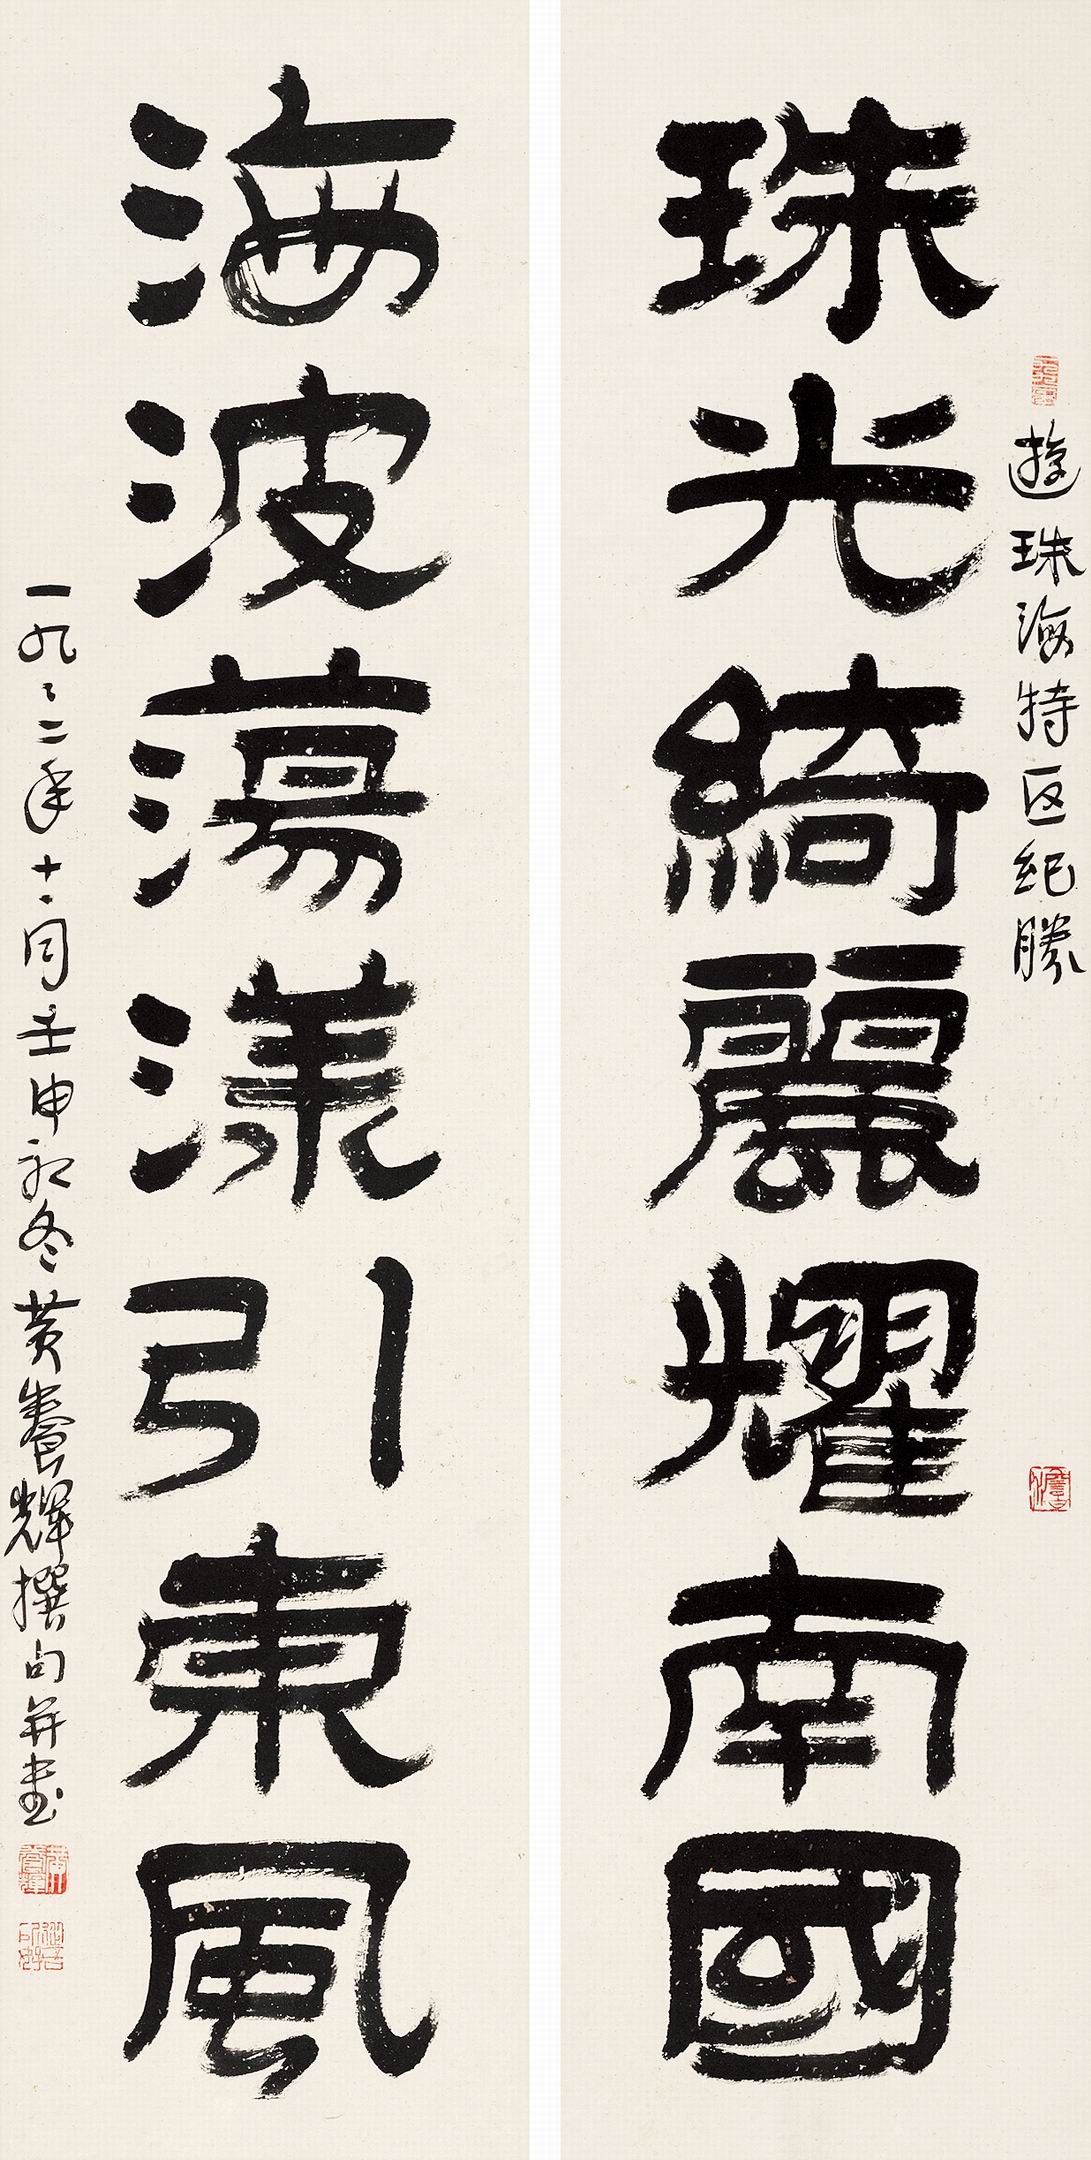 遊珠海特区紀勝
珠光綺麗耀南國
海波蕩漾引東風
一九九二年十一月壬申初冬黄養輝撰句并書
黄養輝